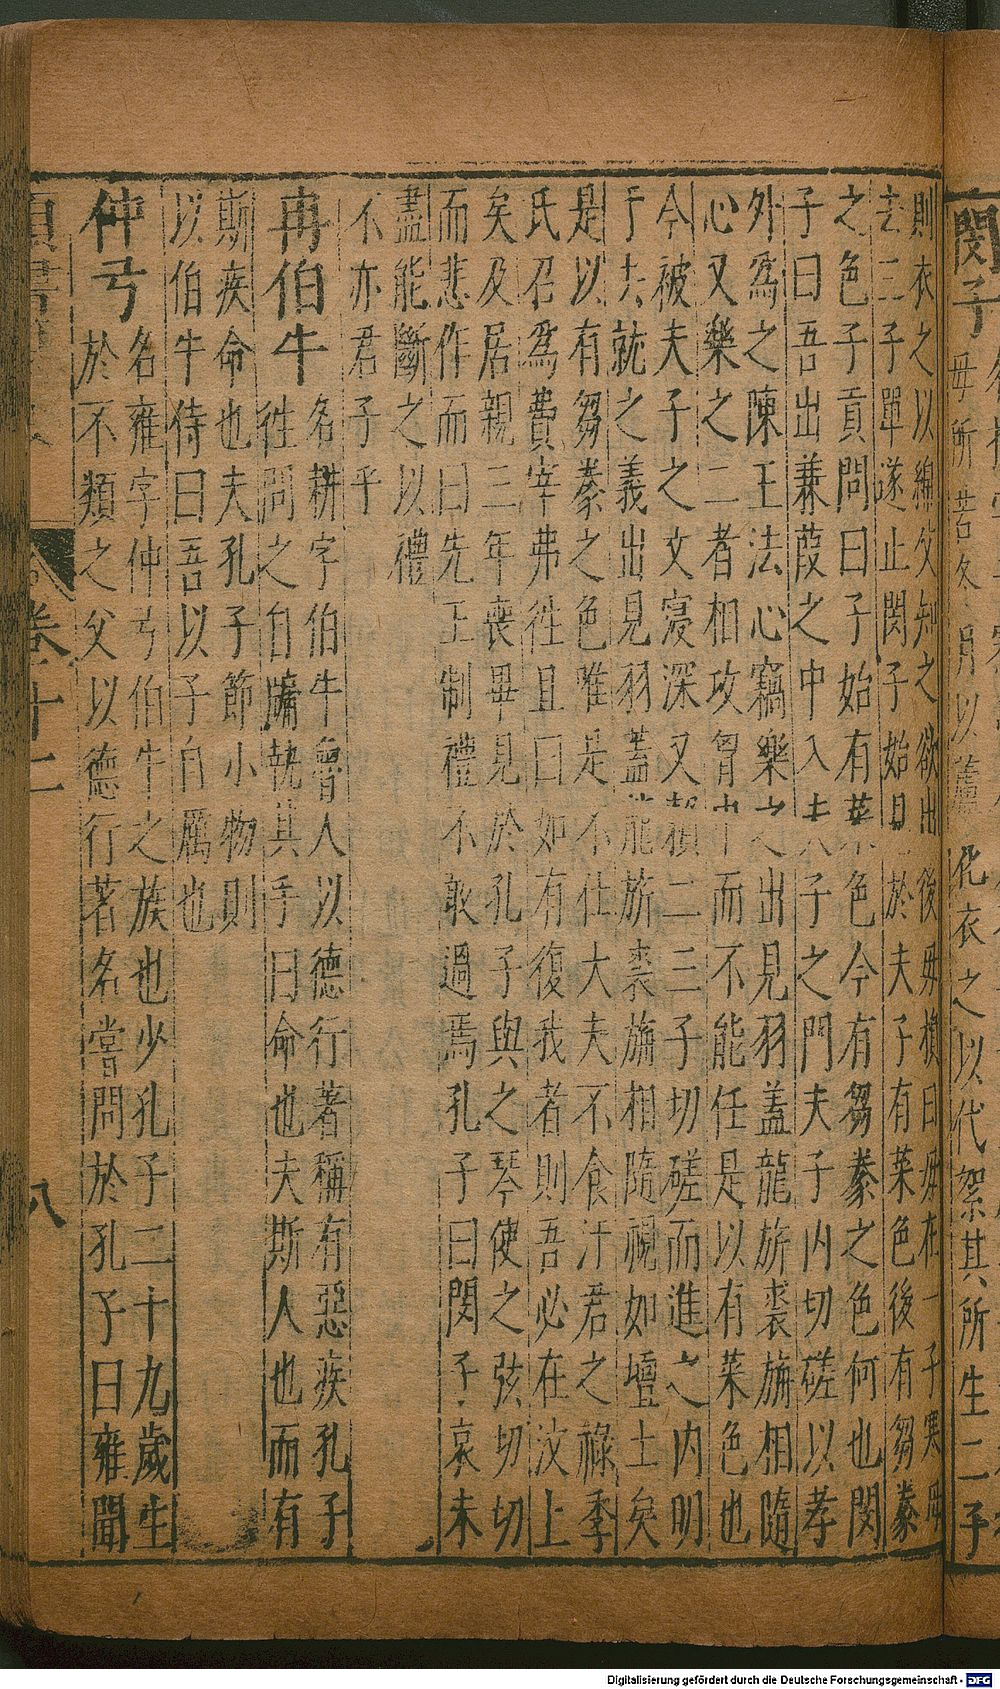 閔子
母所苦冬月以蘆花衣之以代絮其所生二子
則衣之以綿父知之欲出後母損曰母在一子寒母
去三子單遂止閔子始見於夫子有菜色後有芻豢
之色子貢問曰子始有菜色今有芻豢之色何也閔
子曰吾出蒹葭之中入夫子之門夫子內切磋以孝
外為之陳王法心竊樂之出見羽蓋龍旂裘旃相隨
心又樂之二者相攻胷中而不能任是以有菜色也
今被夫子之文寖深又賴二三子切磋而進之內明
于去就之義出見羽蓋龍旂裘旃相隨視如壇土矣
是以有芻豢之色唯是不仕大夫不食汙君之祿季
氏召為費宰弗徃且曰如有復我者則吾必在汶上
矣及居親三年喪畢見於孔子與之琴使之弦切切
而悲作而曰先王制禮不敢過焉孔子曰閔子哀未
盡能斷之以禮
不亦君子乎
冉伯牛
名耕字伯牛魯人以德行著稱有惡疾孔子
徃問之自牖執其手曰命也夫斯人也而有
斯疾命也夫孔子節小物則
以伯牛侍曰吾以子自厲也
仲弓
名雍字仲弓伯牛之族也少孔子二十九歲生
於不類之父以德行著名嘗問於孔子曰雍聞
卷十二
八
Digitalisierung gefördert durch die Deutsche Forschungsgemeinschaft - DFG